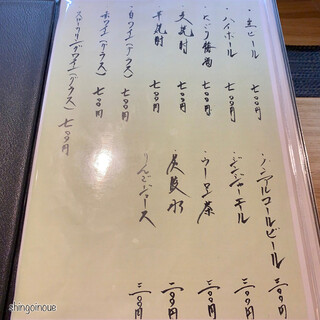 ・生ビール 七〇〇円
・ハイボール 七〇〇円
・にごり梅酒 七〇〇円
・麦焼酎 七〇〇円
・芋焼酎 七〇〇円
・白ワイン(グラス) 七〇〇円
・赤ワイン(グラス) 七〇〇円
・スパークリングワイン(グラス) 七〇〇円
・ノンアルコールビール 五〇〇円
・ジンジャーエール
・ウーロン茶
・炭酸水
りんごジュース
shingoinoue